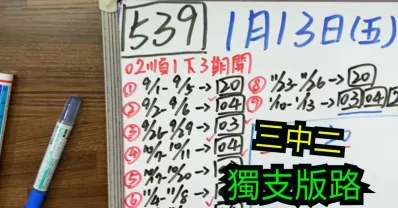 539 1月13日(五)
02順1下3期開
① 9/1-9/5→20
② 9/2-9/6→04
③ 9/26-9/29→03
④ 10/7-10/11→04
⑤ 10/20→
⑥ 11/4-11/8→
⑧ 11/23-11/26→20
⑨ 1/10-1/13→03 04
三中二
獨支版路